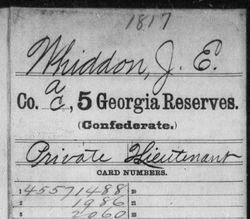 1817
Whiddon, J. E.
Co. a/c, 5 Georgia Reserves.
(Confederate.)
Private Lieutenant
CARD NUMBERS.
1 45571488
2 1986
3 2060